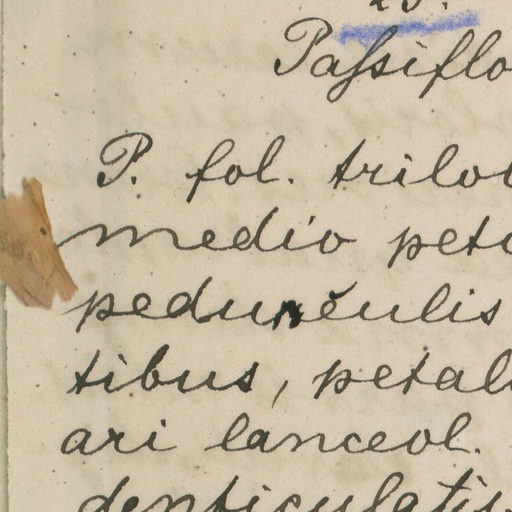 Paſsiflo
P. fol. trilo
medio peto
pedunculis
tibus, petal
ari lanceol.
denticulatis